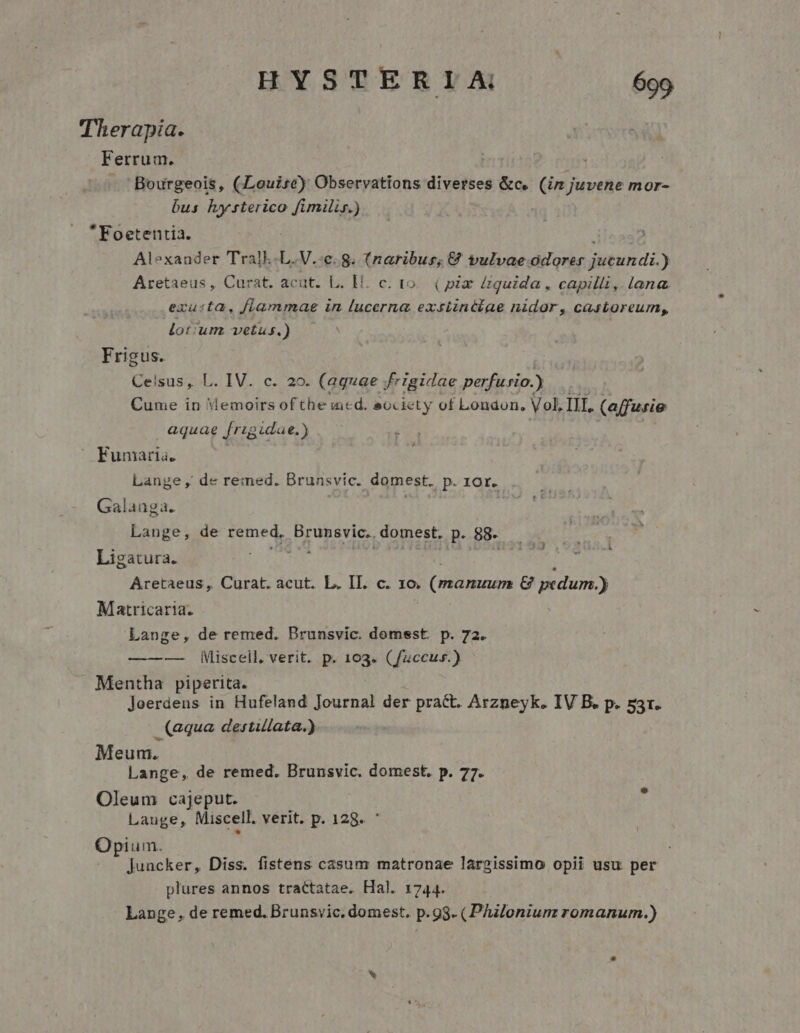 HYSTERIA. 699
Therapia.
Ferrum.
Bourgeois, (Louise) Observations diverses &c. (in juvene mor-
bus hysterico similis.)
*Foetentia.
Alexander Trall. L. V. c. 8. (naribus, & vulvae odores jucundi.)
Aretaeus, Curat. acut. L. II. c. 10 (pix liquida, capilli, lana
exusta, flammae in lucerna exstinctae nidor, castoreum,
lotium vetus.)
Frigus.
Celsus, L. IV. c. 20. (aquae frigidae perfusio.)
Cume in Memoirs of the med. society of London. Vol. III. (affusio
aquae frigidae.)
Fumaria.
Lange, de remed. Brunsvic. domest. p. 101.
Galanga.
Lange, de remed. Brunsvic. domest. p. 88.
Ligatura.
Aretaeus, Curat. acut. L. II. c. 10. (manuum & pedum.)
Matricaria.
Lange, de remed. Brunsvic. domest. p. 72.
——— Miscell. verit. p. 103. (succus.)
Mentha piperita.
Joerdens in Hufeland Journal der pract. Arzneyk. IV B. p. 531.
(aqua destillata.)
Meum.
Lange, de remed. Brunsvic. domest. p. 77.
Oleum cajeput.
Lange, Miscell. verit. p. 128.
Opium.
Juncker, Diss. sistens casum matronae largissimo opii usu per
plures annos tractatae. Hal. 1744.
Lange, de remed. Brunsvic. domest. p. 98. (Philonium romanum.)